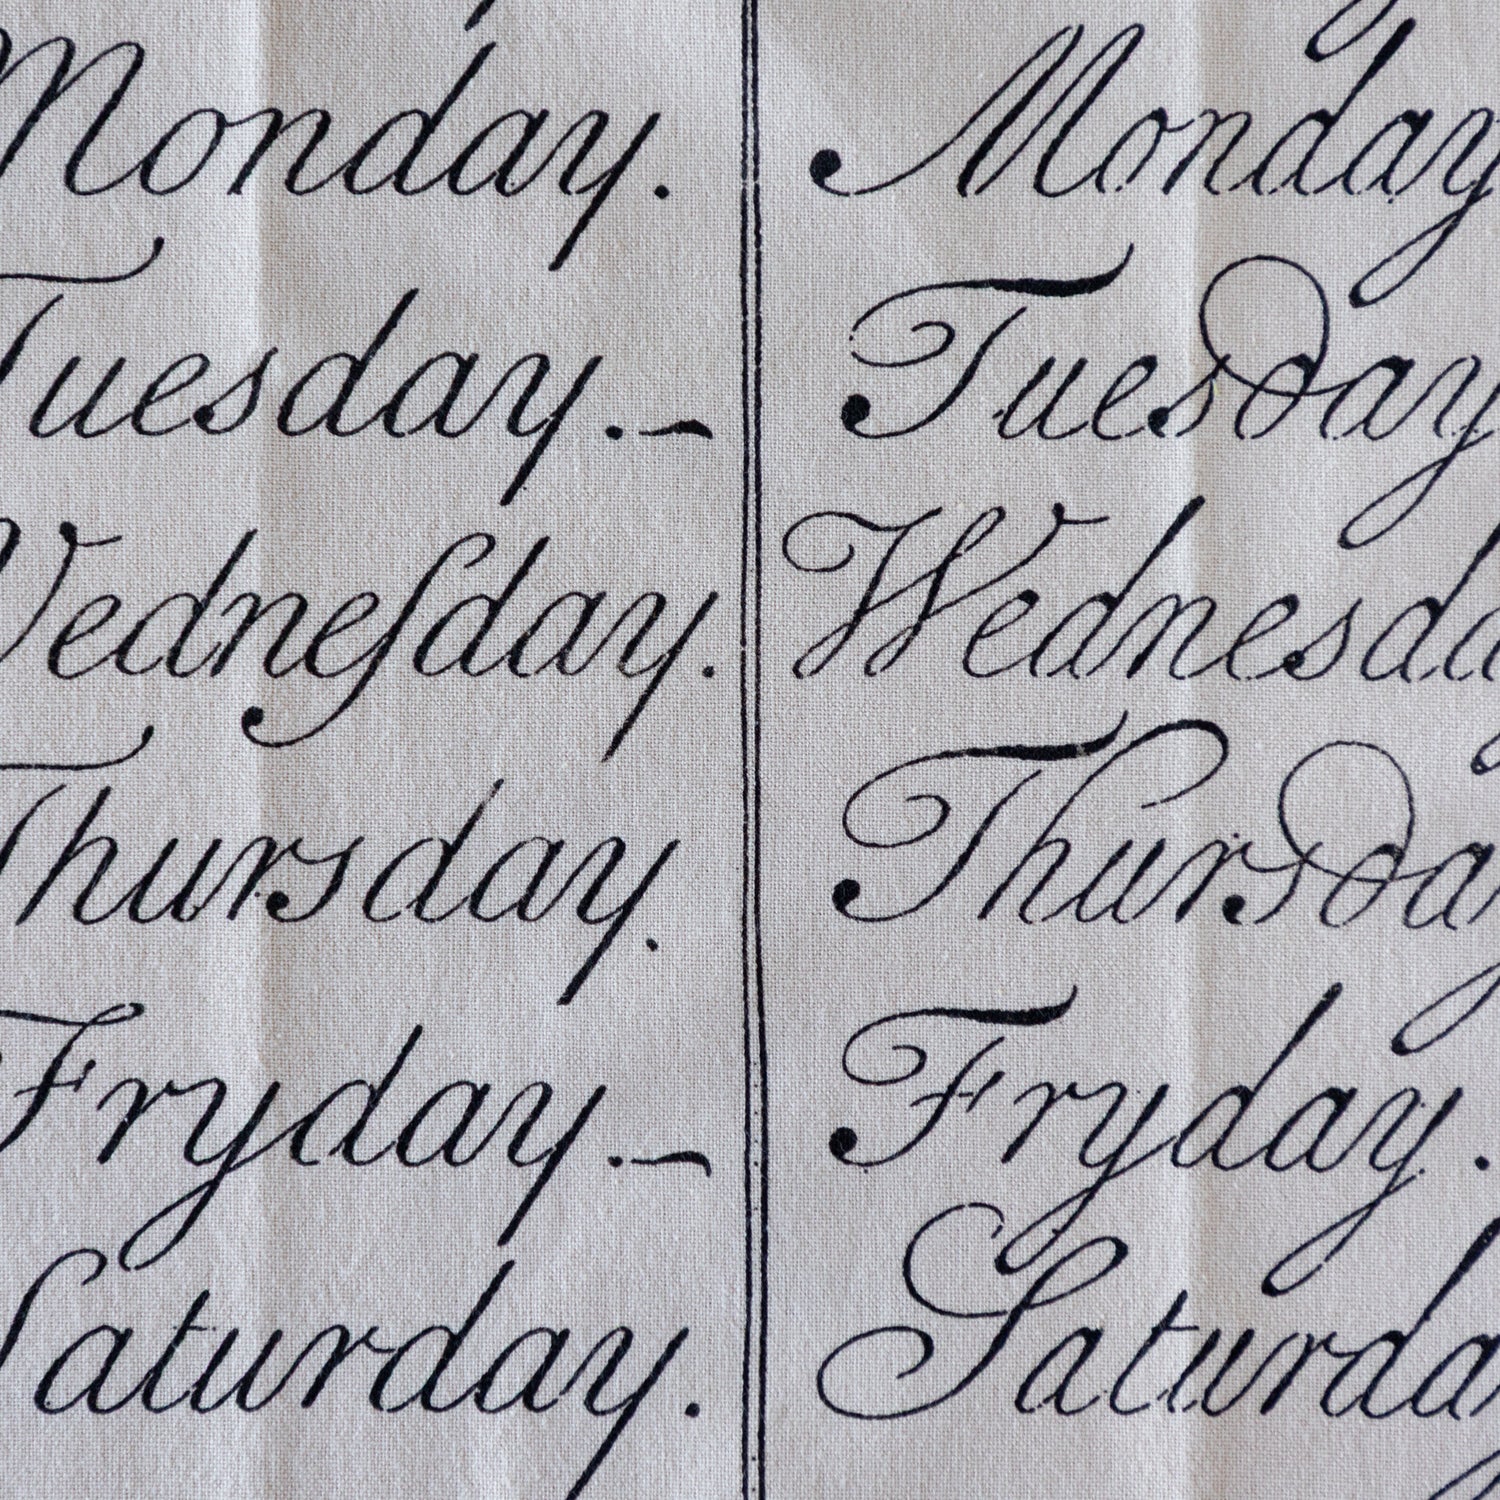 Monday.
Tuesday.-
Wedneſday.
Thursday.
Fryday.-
Saturday.
Monday
Tuesday
Wednesda
Thursday
Fryday.
Saturda